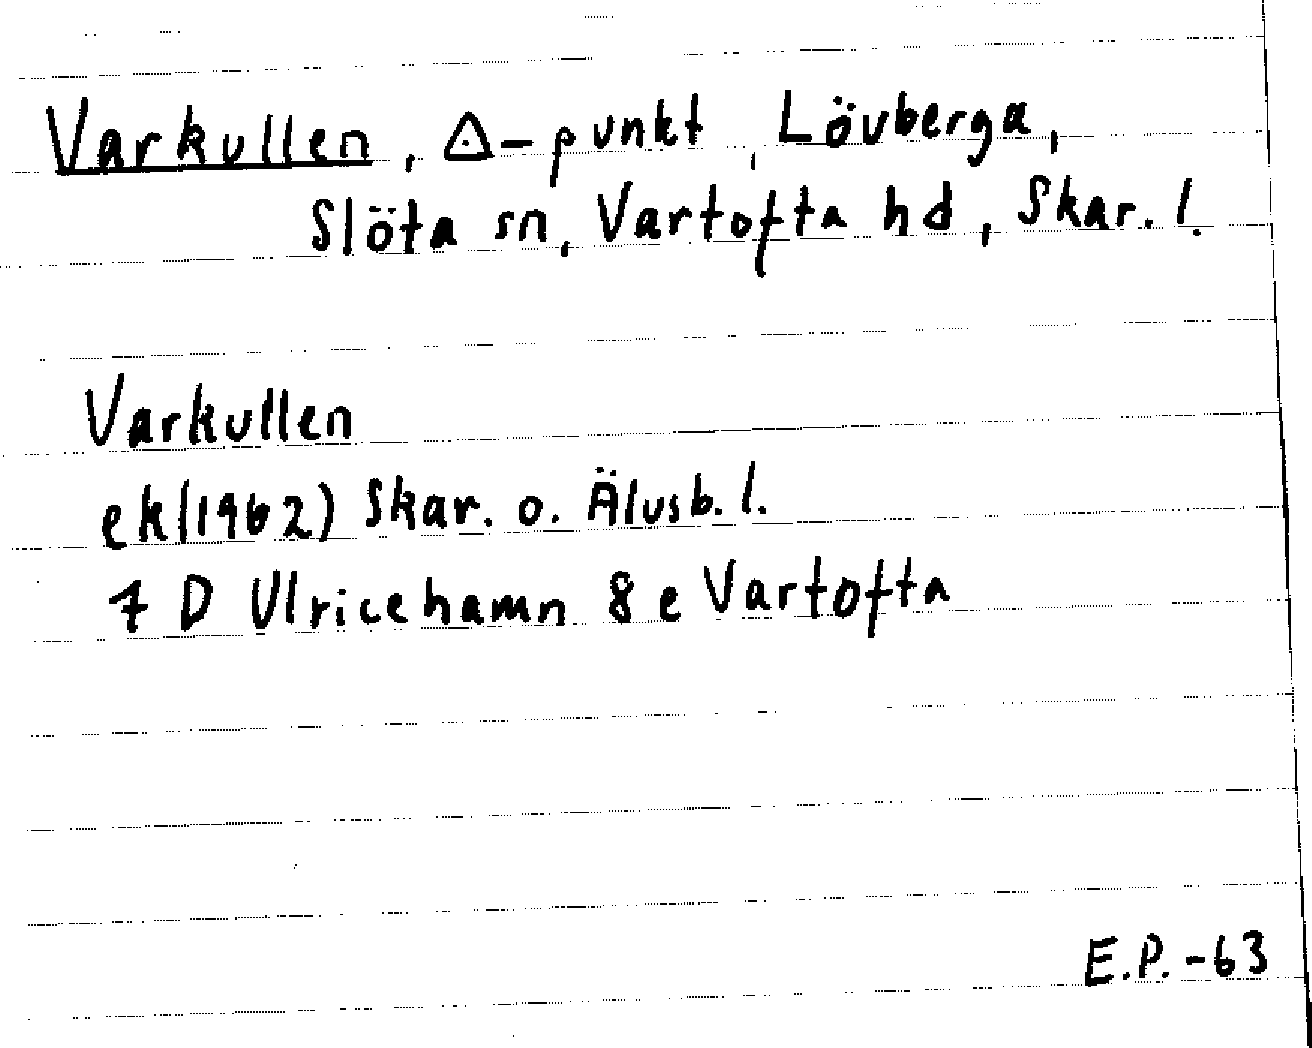 Varkullen, △-punkt, Lövberga,
Slöta sn, Vartofta hd, Skar. l.
Varkullen
ek (1962) Skar. o. Älvsb. l.
7 D Ulricehamn 8 e Vartofta
E.P. -63